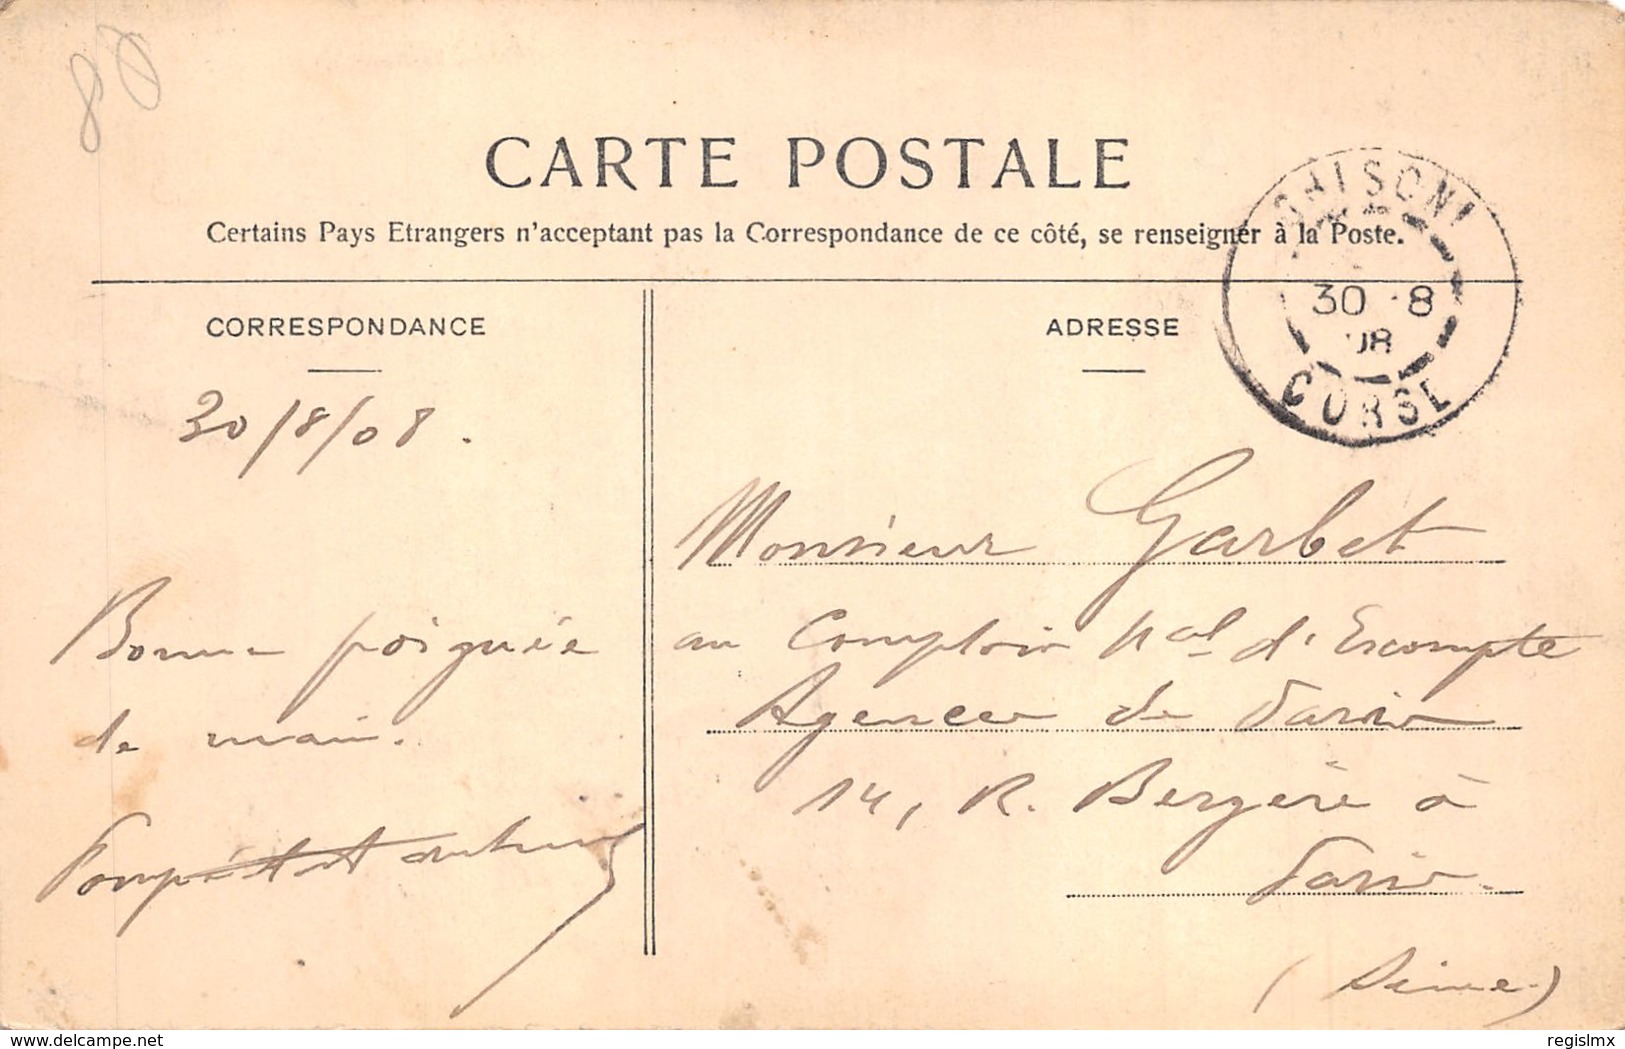 80
CARTE POSTALE
Certains Pays Etrangers n'acceptent pas la Correspondance de ce côté, se renseigner à la Poste.
CORRESPONDANCE
30/8/08.
Bonne poignée
de main.
ADRESSE
30 8
08
CORSE
Monsieur Garbet
au Comptoir Nal d'Escompte
Agence de Paris
14, R. Bergère à
Paris.
(Seine)
delcampe.net
regislmx